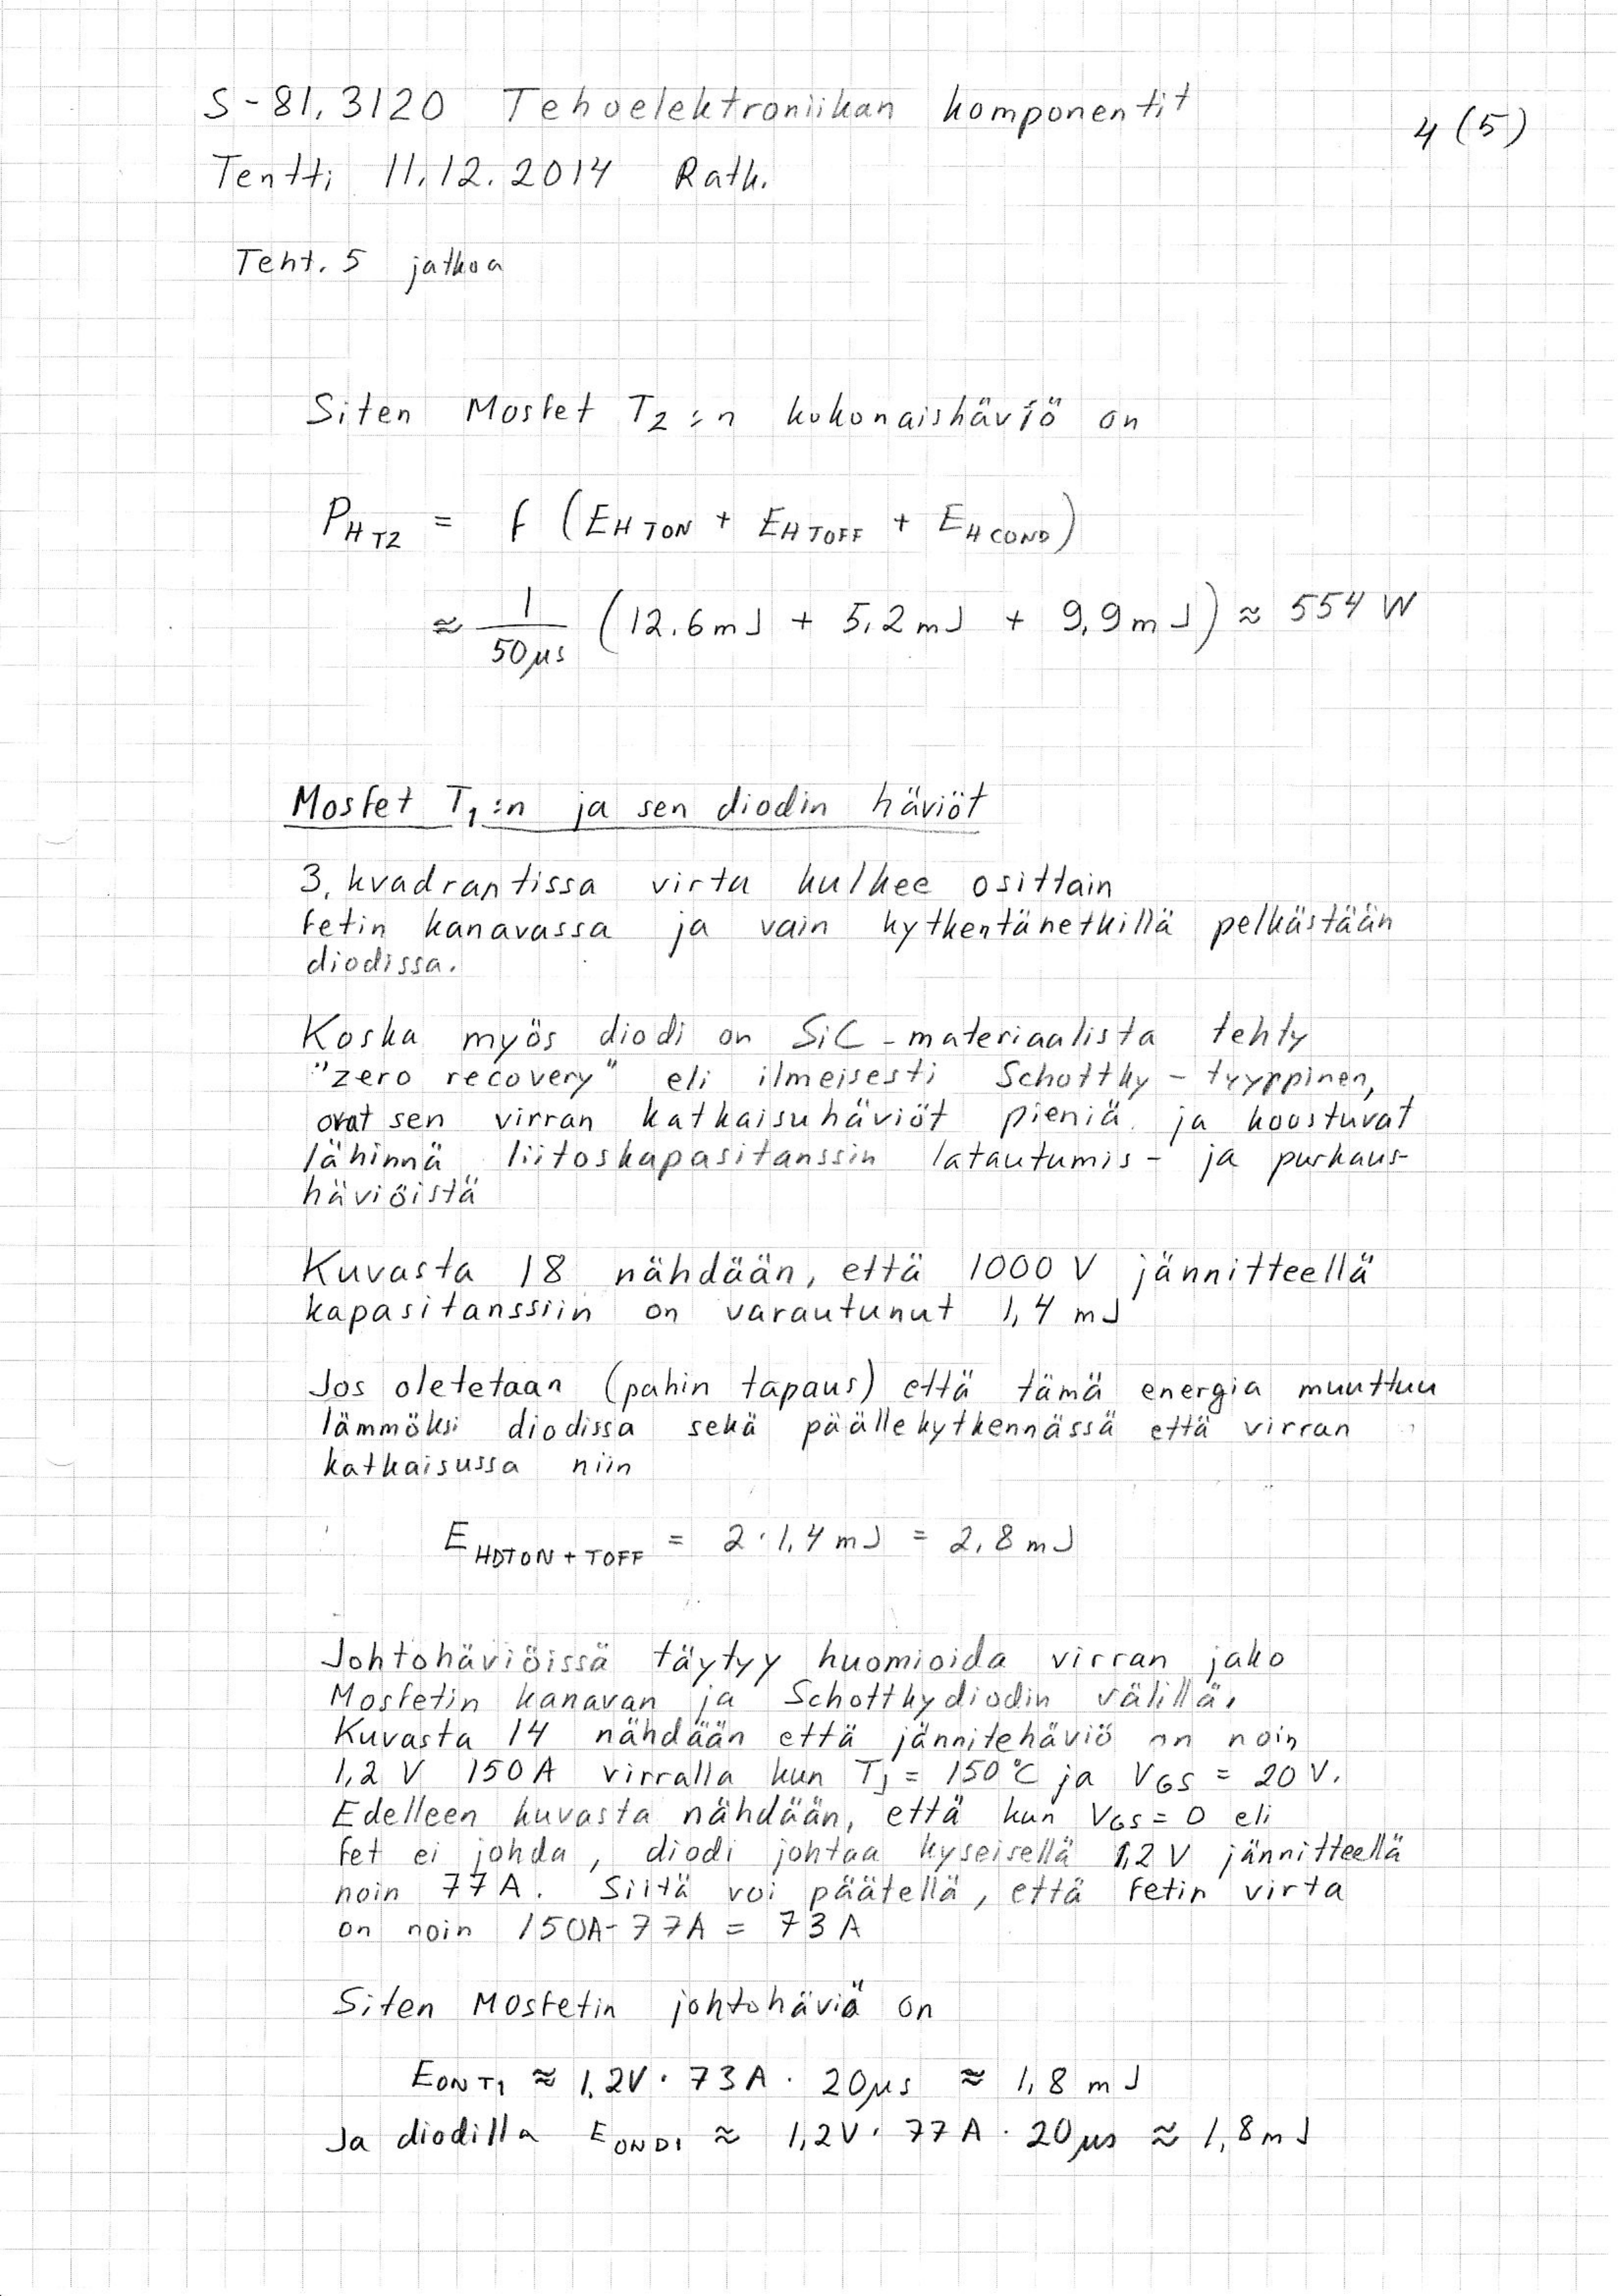 S-81.3120 Tehoelektroniikan komponentit
4 (5)
Tentti 11.12.2014 Ratk.
Teht. 5 jatkoa
Siten Mosfet T2:n kokonaishäviö on
P_HT2 = f (E_HTON + E_HTOFF + E_HCOND)
≈ 1/50µs (12.6mJ + 5,2mJ + 9,9mJ) ≈ 554 W
Mosfet T1:n ja sen diodin häviöt
3. kvadrantissa virta kulkee osittain
fetin kanavassa ja vain kytkentähetkillä pelkästään
diodissa.
Koska myös diodi on SiC-materiaalista tehty
"zero recovery" eli ilmeisesti Schottky-tyyppinen,
ovat sen virran katkaisuhäviöt pieniä ja koostuvat
lähinnä liitoskapasitanssin latautumis- ja purkaus-
häviöistä
Kuvasta 18 nähdään, että 1000 V jännitteellä
kapasitanssiin on varautunut 1,4 mJ
Jos oletetaan (pahin tapaus) että tämä energia muuttuu
lämmöksi diodissa sekä päällekytkennässä että virran
katkaisussa niin
E_HDTON+TOFF = 2·1,4 mJ = 2,8 mJ
Johtohäviöissä täytyy huomioida virran jako
Mosfetin kanavan ja Schottkydiodin välillä.
Kuvasta 14 nähdään että jännitehäviö on noin
1,2 V 150A virralla kun TJ = 150°C ja VGS = 20 V.
Edelleen kuvasta nähdään, että kun VGS = 0 eli
fet ei johda, diodi johtaa kyseisellä 1,2 V jännitteellä
noin 77A. Siitä voi päätellä, että fetin virta
on noin 150A-77A = 73 A
Siten Mosfetin johtohäviö on
E_ONT1 ≈ 1.2V · 73A · 20µs ≈ 1,8 mJ
Ja diodilla E_OND1 ≈ 1,2V · 77A · 20µs ≈ 1,8mJ